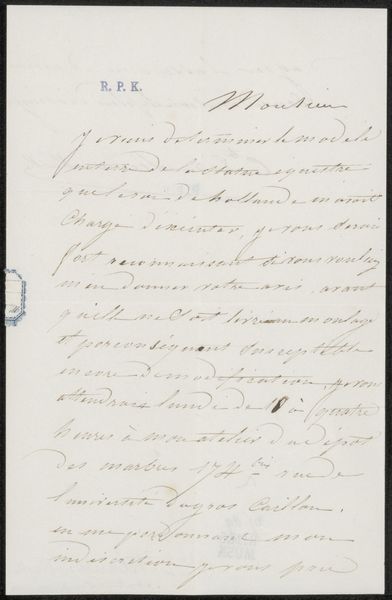 R. P. K.
Monsieur
je viens de terminer le modèle
en terre de la statue equestre
que le roi de hollande m'avait
chargé d'éxécuter, je vous serais
fort reconnaissant si vous vouliez
m'en donner votre avis, avant
qu'elle ne soit livrée au moulage
et par conséquent susceptible
encore de modification, je vous
attendrais lundi de 10 à quatre
heures à mon atelier du dépot
des marbres 174 bis rue de
l'université du gros Caillou.
en me pardonnant mon
indiscrétion je vous prie